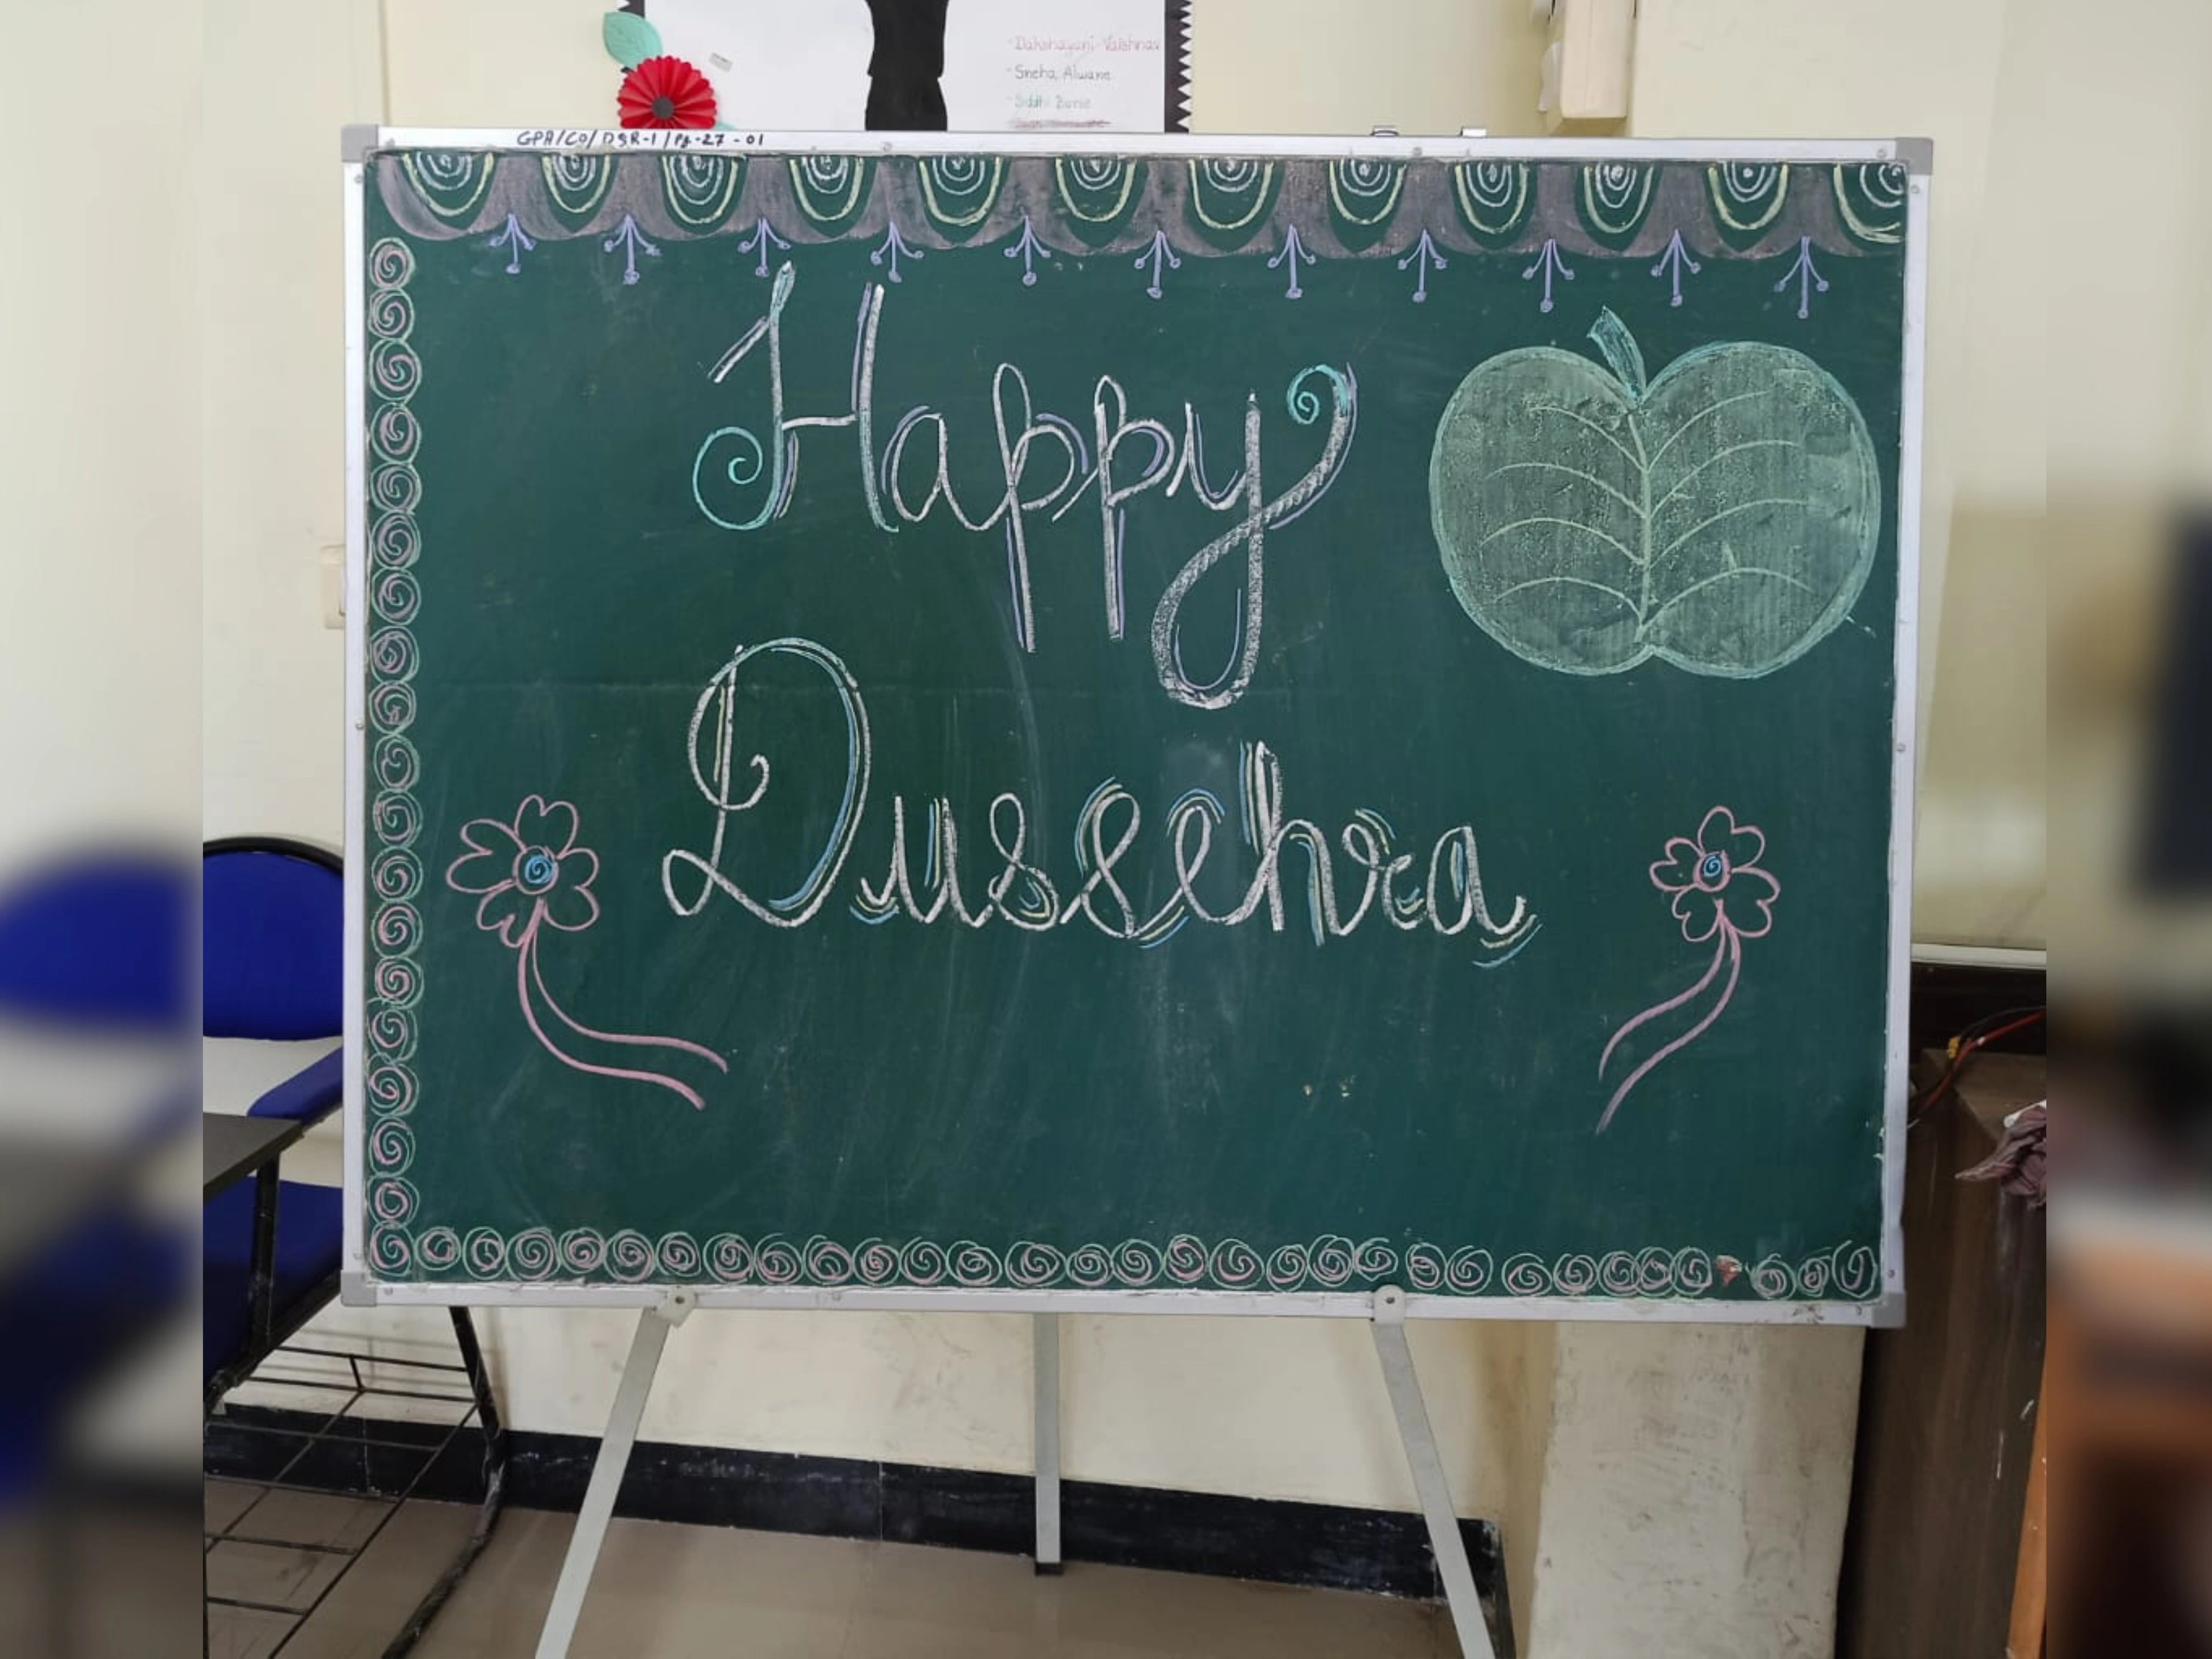 -Dakshayani Vaishnav
-Sneha Alwane
-Siddhi Barse
GPA/CO/DSR-1/Pg-27-01
Happy
Dussehra